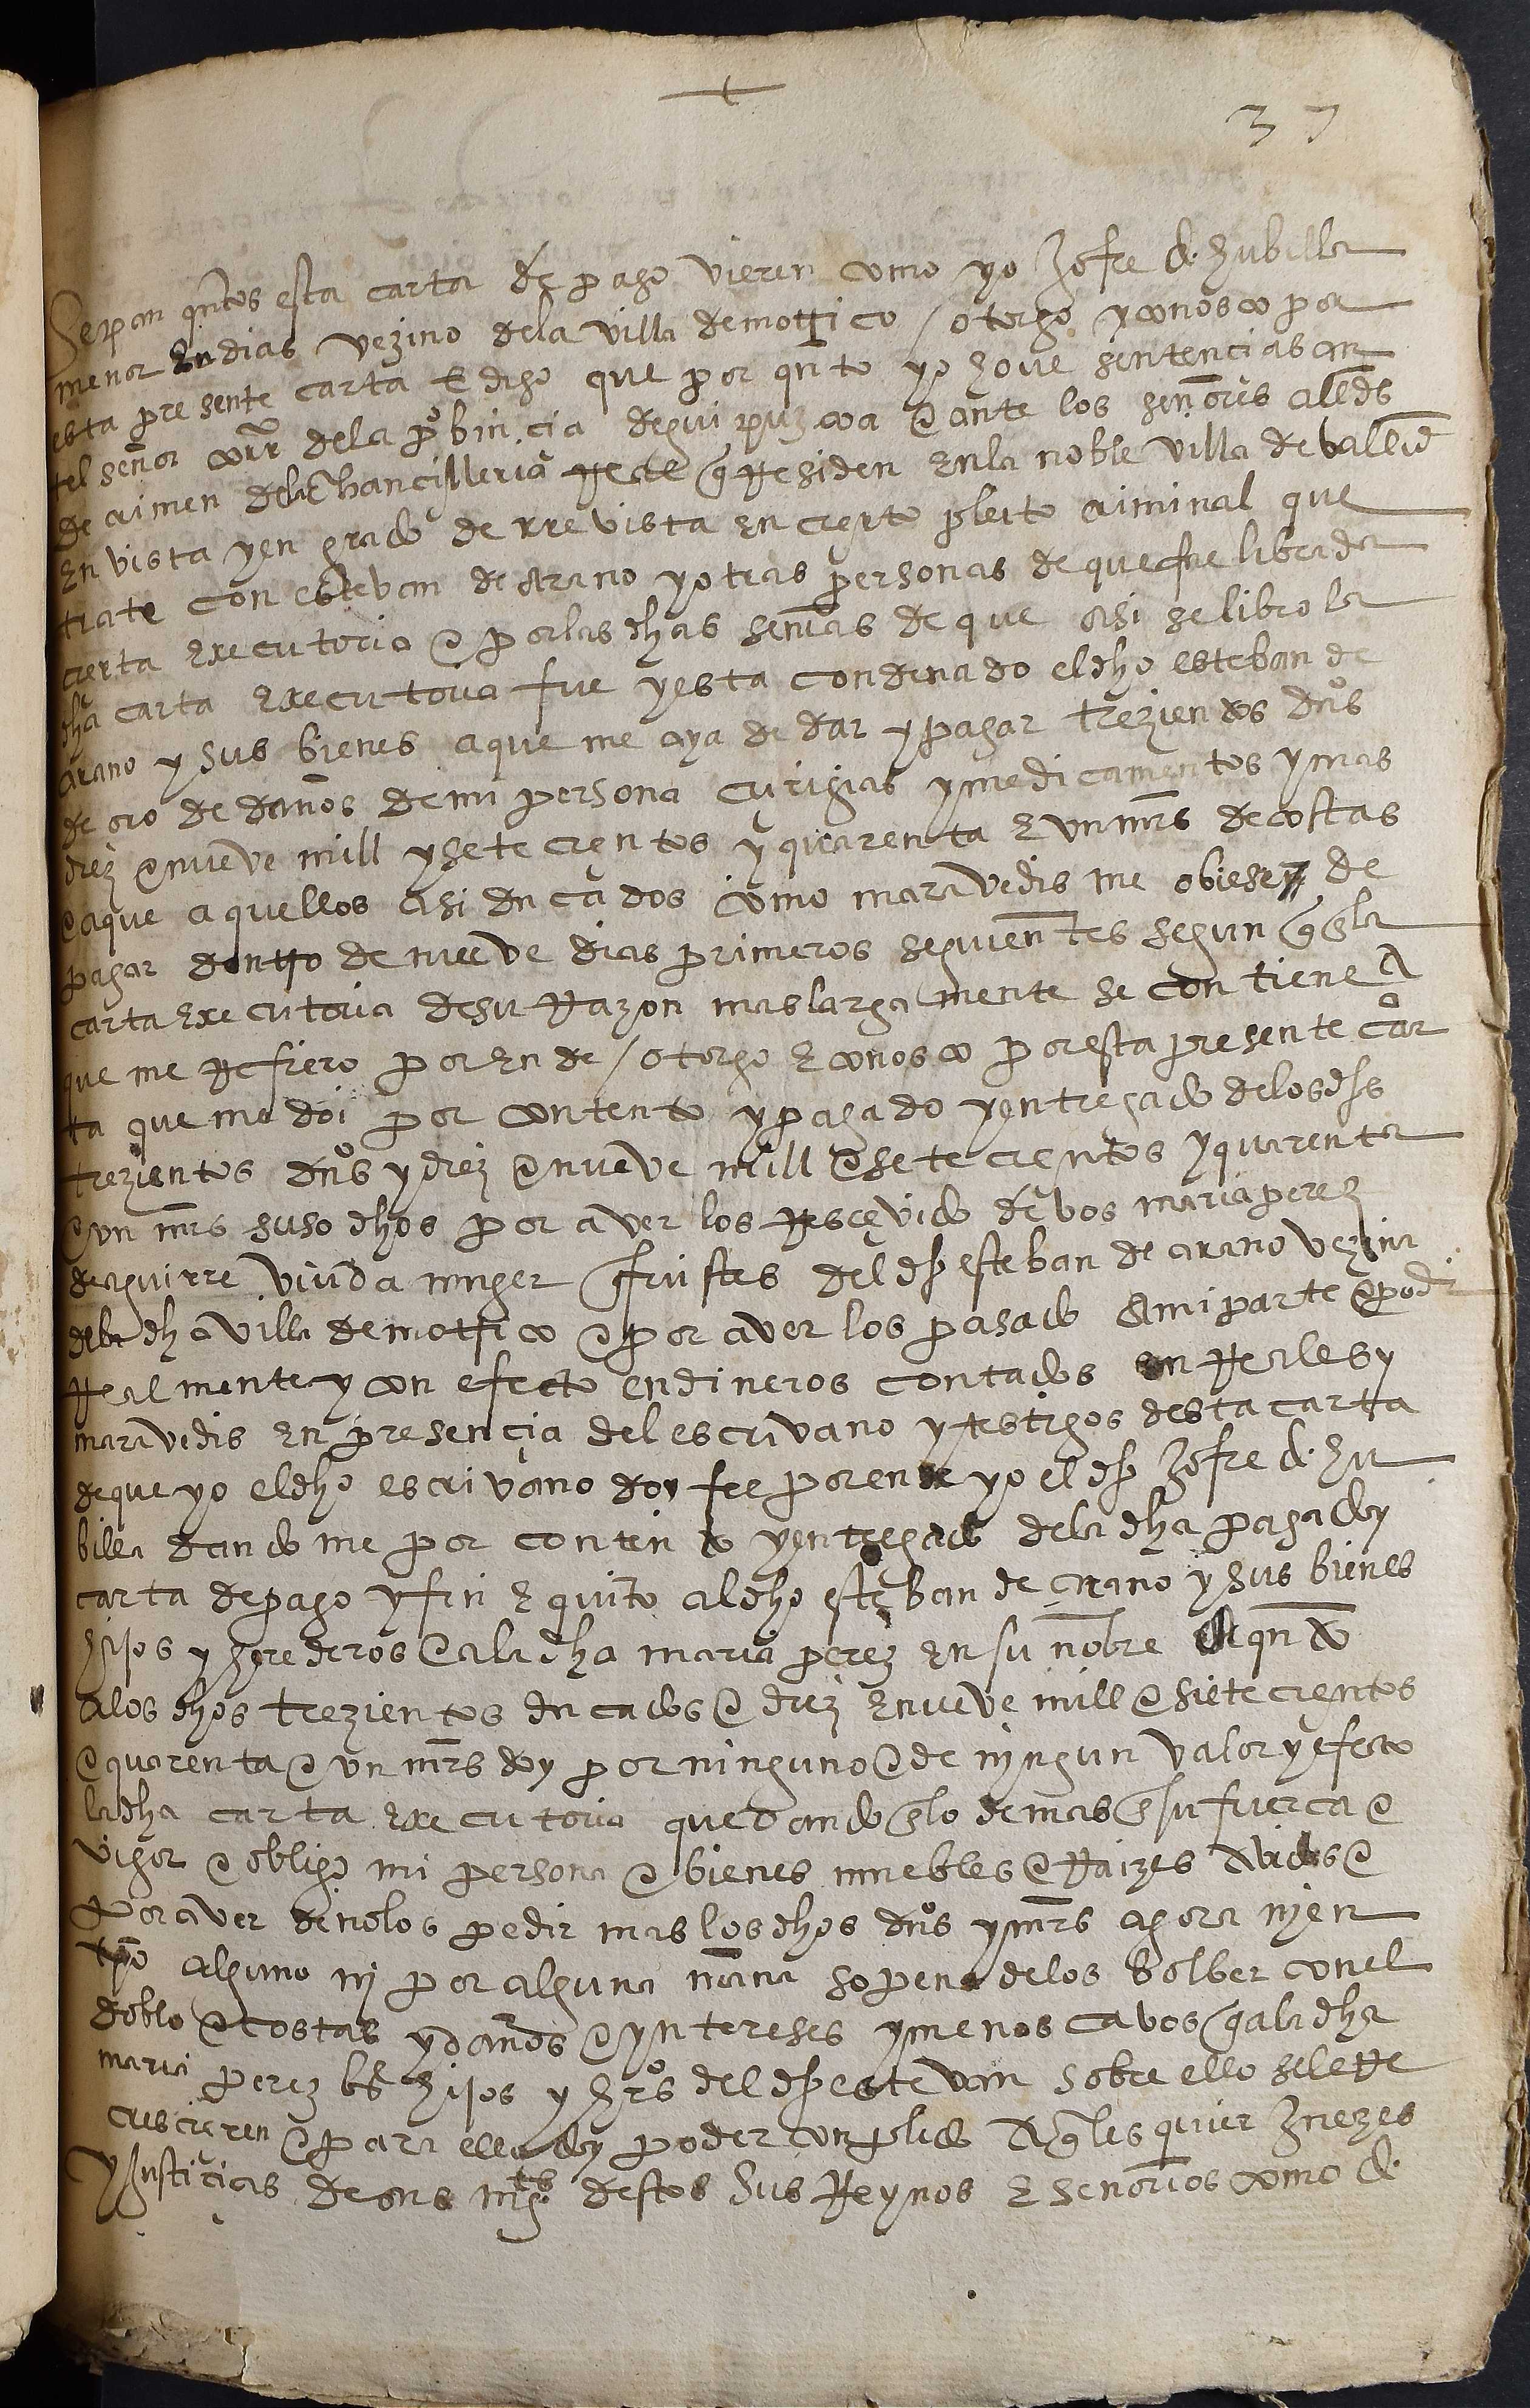 +
37
Sepan qntos esta carta de pago vieren como yo Jofre de Zubilla
menor en dias vezino de la villa de motrico / otorgo y conosco por
esta presente carta e digo que por qnto yo hove sentencias an
tel señor corr de la probinçia de guipuzcoa e ante los señores allds
de crimen de la chancilleria Real q Residen en la noble villa de vallid
en vista y en grado de rrevista en cierto pleito criminal que
trate con estevan de arano y otras personas de que fue librada
cierta executoria e por las dhas senias de que asi se libro la
dha carta executoria fue y esta condenado el dho esteban de
arano y sus bienes a que me aya de dar y pagar trezientos dus
de oro de daños de mi persona cirigias y medicamentos y mas
diez e nueve mill y sete cientos y quarenta e un mrs de costas
e a que aquellos asi ducados como maravedis me obiese de
pagar dentro de nueve dias primeros seguientes segun q la
carta executoria de su Razon mas largamente se contiene A
que me Refiero por ende / otorgo e conosco por esta presente car
ta que me doi por contento y pagado y entregado de los dhs
trezientos dus y diez e nueve mill e sete cientos y quarenta
e un mrs suso dhos por aver los Resçevido de vos maria perez
de aguirre viuda muger q fuistes del dho esteban de arano vezina
de la dha villa de motrico e por aver los pasado a mi parte e poder
Realmente y con efecto en dineros contados en Reales y
maravedis en presençia del escrivano y testigos desta carta
de que yo el dho escrivano doy fee por ende yo el dho Jofre de Zu
billa dando me por contento y entregado de la dha paga doy
carta de pago y fin e quito al dho esteban de arano y sus bienes
hijos y herederos e a la dha maria perez en su nobre e qnto
a los dhos trezientos ducados e diez e nueve mill e siete cientos
e quarenta e un mrs doy por ninguno e de ningun valor y efecto
la dha carta executoria quedando en lo demas en su fuerca e
vigor e obligo mi persona e bienes muebles e Raizes avidos e
por aver de no los pedir mas los dhos dus y mrs agora ni en
tpo alguno ni por alguna mana so pena de los bolber con el
doblo e costas y daños e yntereses y menoscavos q a la dha
maria perez hijos y hrs del dho estevan sobre ello se le Re
cresçieren e para ello doy poder conplido a qles quier Juezes
y Justiçias de sus mgts destos sus Reynos e señorios como de